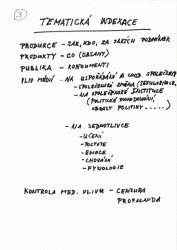 3
TEMATICKÁ INDEXACE
PRODUKCE - JAK, KDO, ZA JAKÝCH PODMÍNEK
PRODUKTY - CO (OBSAHY)
PUBLIKA - KONZUMENTI
VLIV MÉDIÍ - NA USPOŘÁDÁNÍ A CHOD SPOLEČNOSTI
- SPOLEČENSKÁ ZMĚNA (SEKULARIZACE,
- NA SPOLEČENSKÉ INSTITUCE
(POLITICKÉ
OBRAZY POLITIKY .....)
- NA JEDNOTLIVCE
- UČENÍ
- POSTOJE
- EMOCE
- CHOVÁNÍ
- FYZIOLOGIE
KONTROLA MED. VLIVU - CENZURA
PROPAGANDA